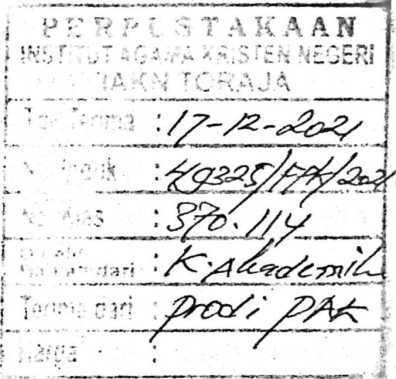 PERPUSTAKAAN
INSTITUT AGAMA KRISTEN NEGERI
IAKN TORAJA
Tgl Terima : 17-12-2021
No Induk : 49325/FPK/2021
No Klas : 370.114
: K. Akademik
Terima dari : Prodi PAK
Harga :